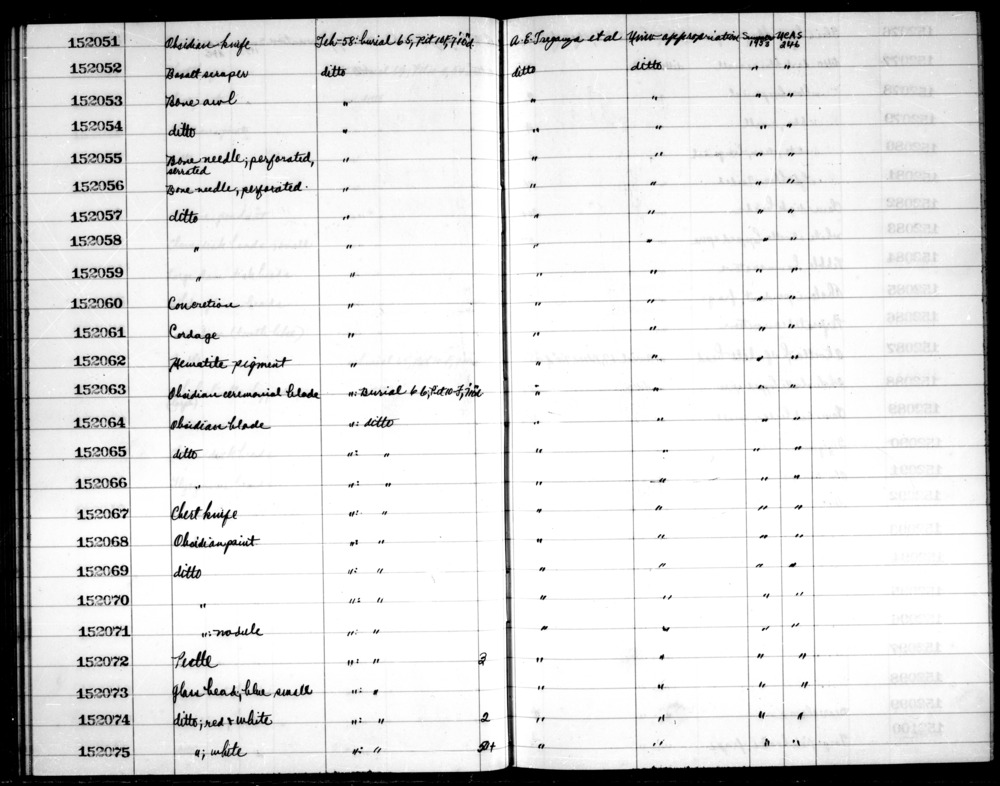 152051 Obsidian knife Teh-58: burial 65, Pit 10f, 7'10"d. A.E. Treganza et al Univ appropriation Summer 1953 UCAS 246
152052 Basalt scraper ditto ditto ditto " "
152053 Bone awl " " " " "
152054 ditto " " " " "
152055 Bone needle; perforated, serrated " " " " "
152056 Bone needle, perforated. " " " " "
152057 ditto " " " " "
152058 " " " " " "
152059 " " " " " "
152060 Concretion " " " " "
152061 Cordage " " " " "
152062 Hematite pigment " " " " "
152063 Obsidian ceremonial blade ": Burial 66, Pit 10-F, " " " "
152064 Obsidian blade ": ditto " " " "
152065 ditto ": " " " " "
152066 " ": " " " " "
152067 Chert knife ": " " " " "
152068 Obsidian point ": " " " " "
152069 ditto ": " " " " "
152070 " ": " " " " "
152071 ": nodule ": " " " " "
152072 Pestle ": " 2 " " " "
152073 Glass beads; blue, small ": " " " " "
152074 ditto; red & white ": " 2 " " " "
152075 "; white ": " " " " "